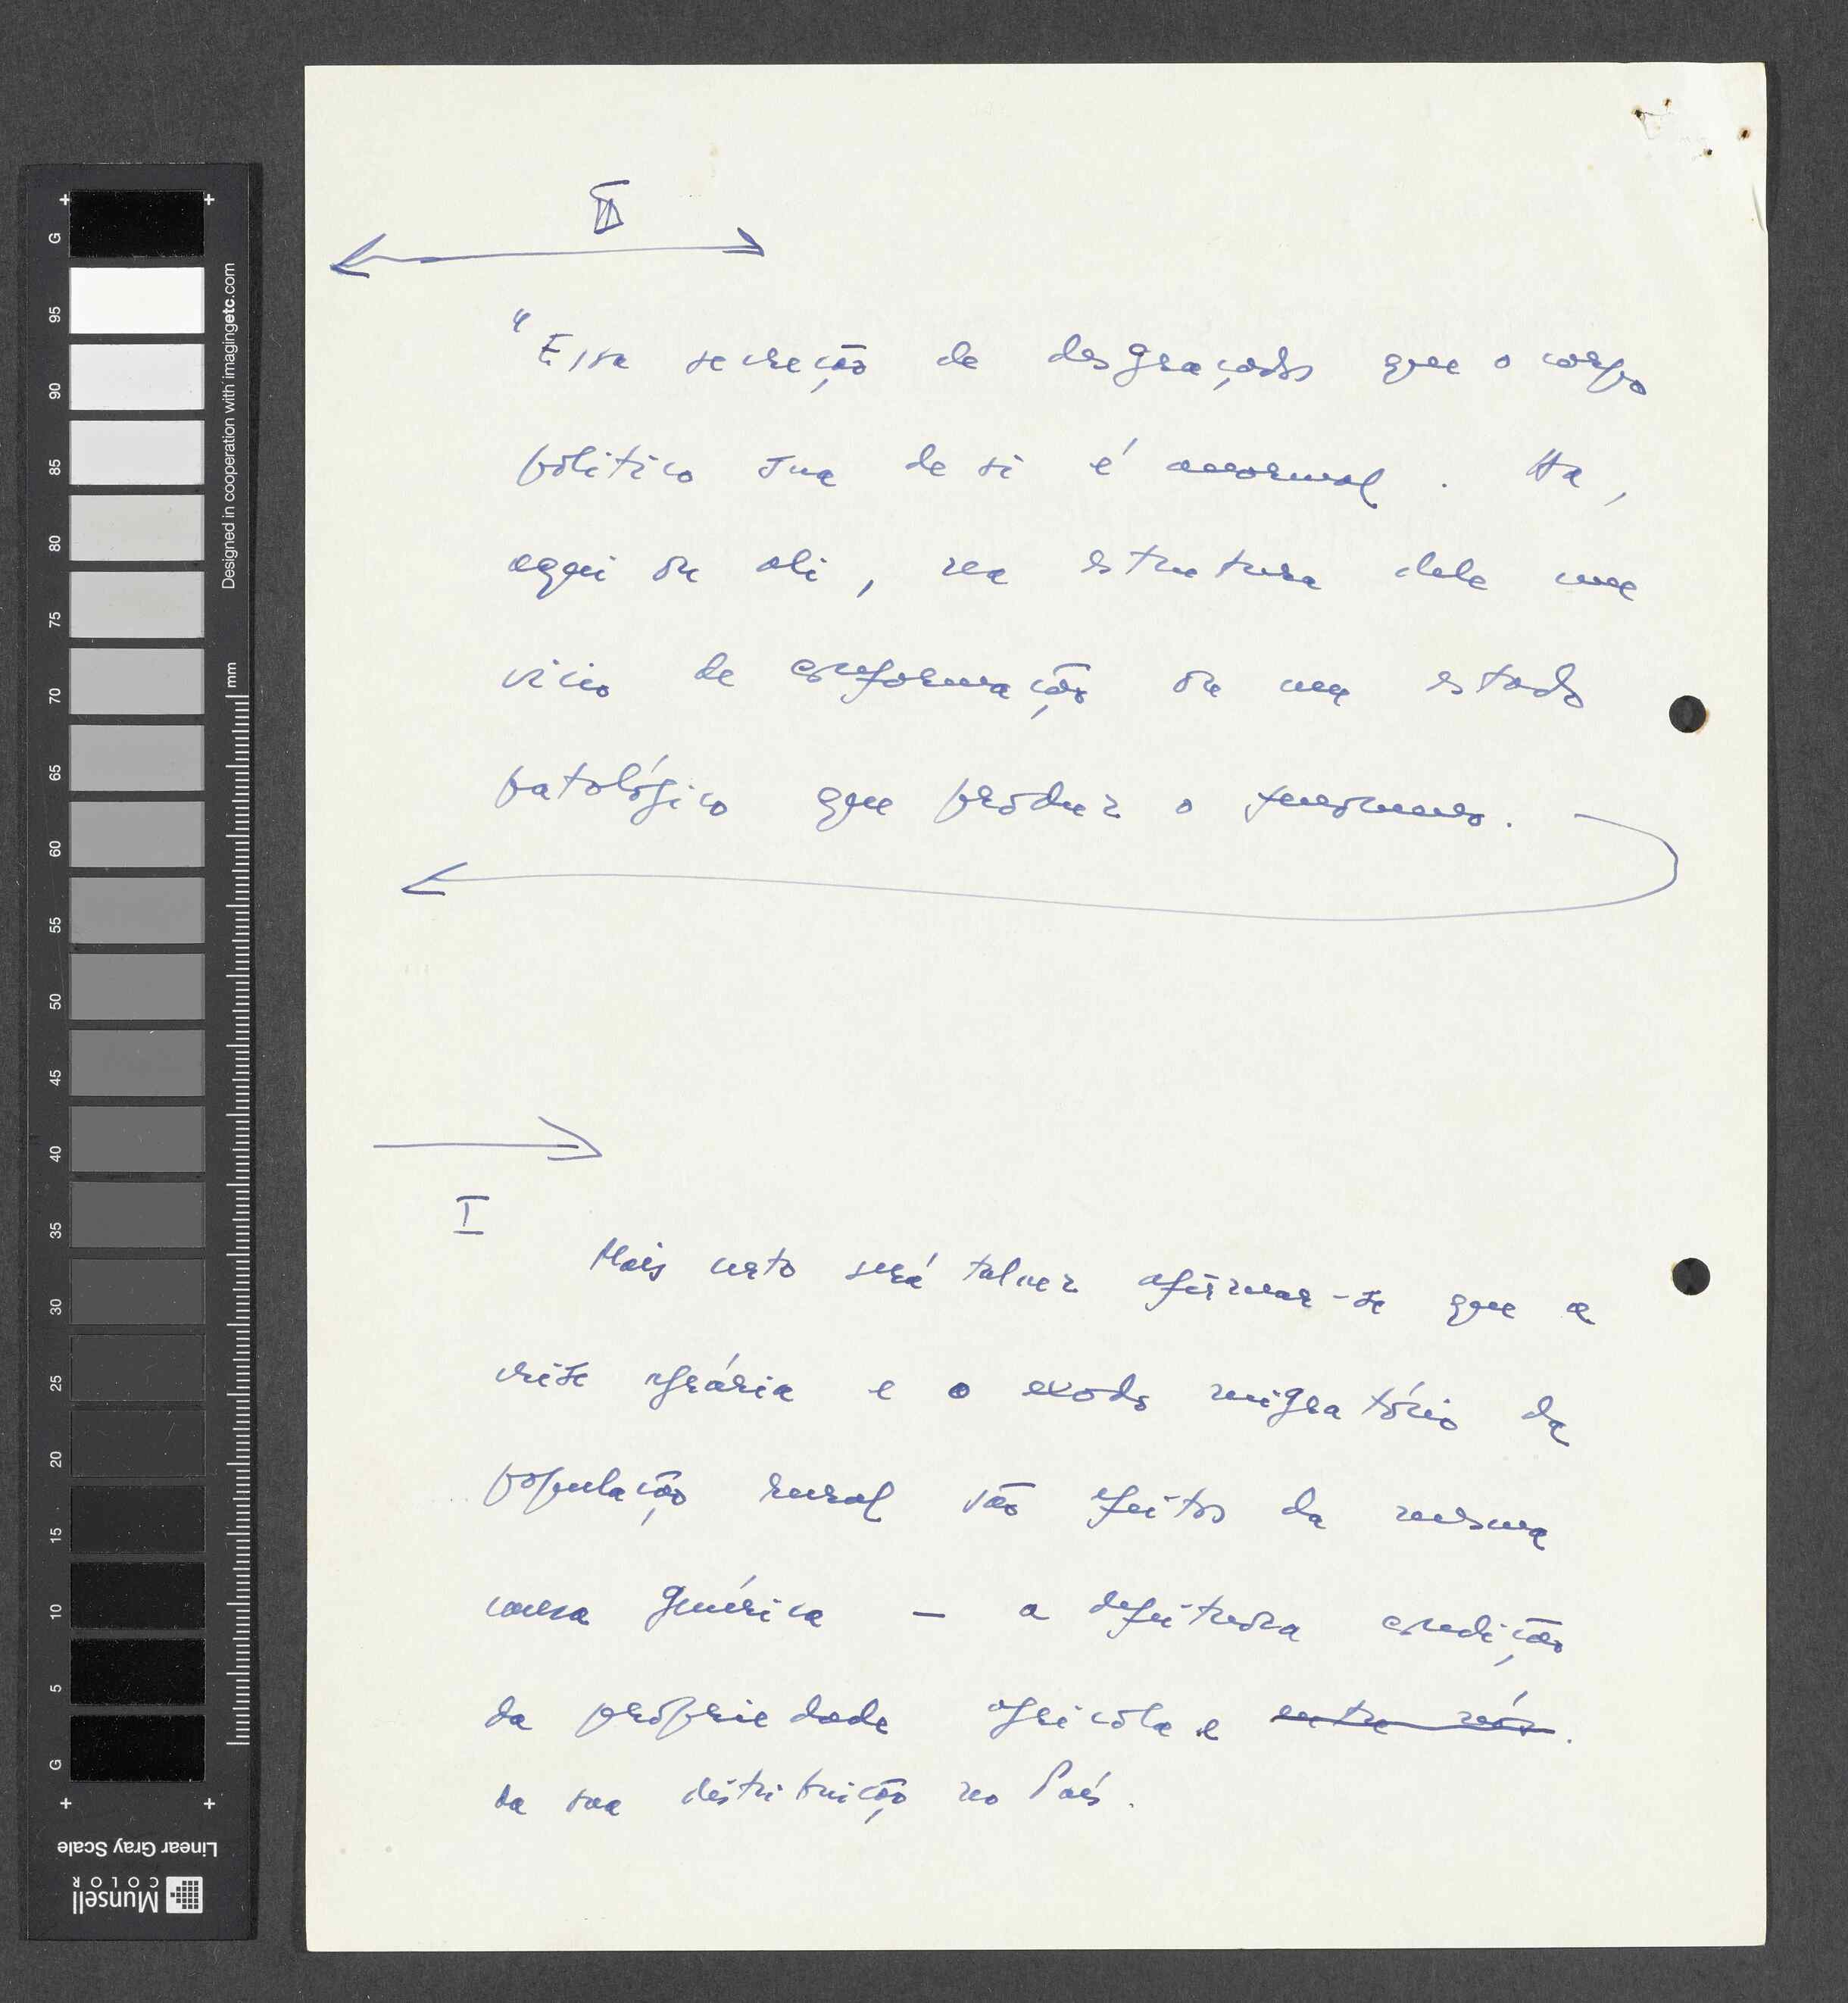 II
"Essa secreção de desgraçados que o corpo
político sua de si é anormal. Ha,
aqui ou ali, na estrutura dele um
vicio de conformação ou um estado
patológico que produz o fenomeno.
I
Mais certo será talvez afirmar-se que a
crise agrária e o exodo migratório da
população rural são efeitos da mesma
causa genérica — a defeituosa condição
da propriedade agricola e entre nós.
da sua distribuição no País.
G
95
90
85
80
75
70
65
60
55
50
45
40
35
30
25
20
15
10
5
G
Designed in cooperation with imagingetc.com
mm
Linear Gray Scale
Munsell
COLOR